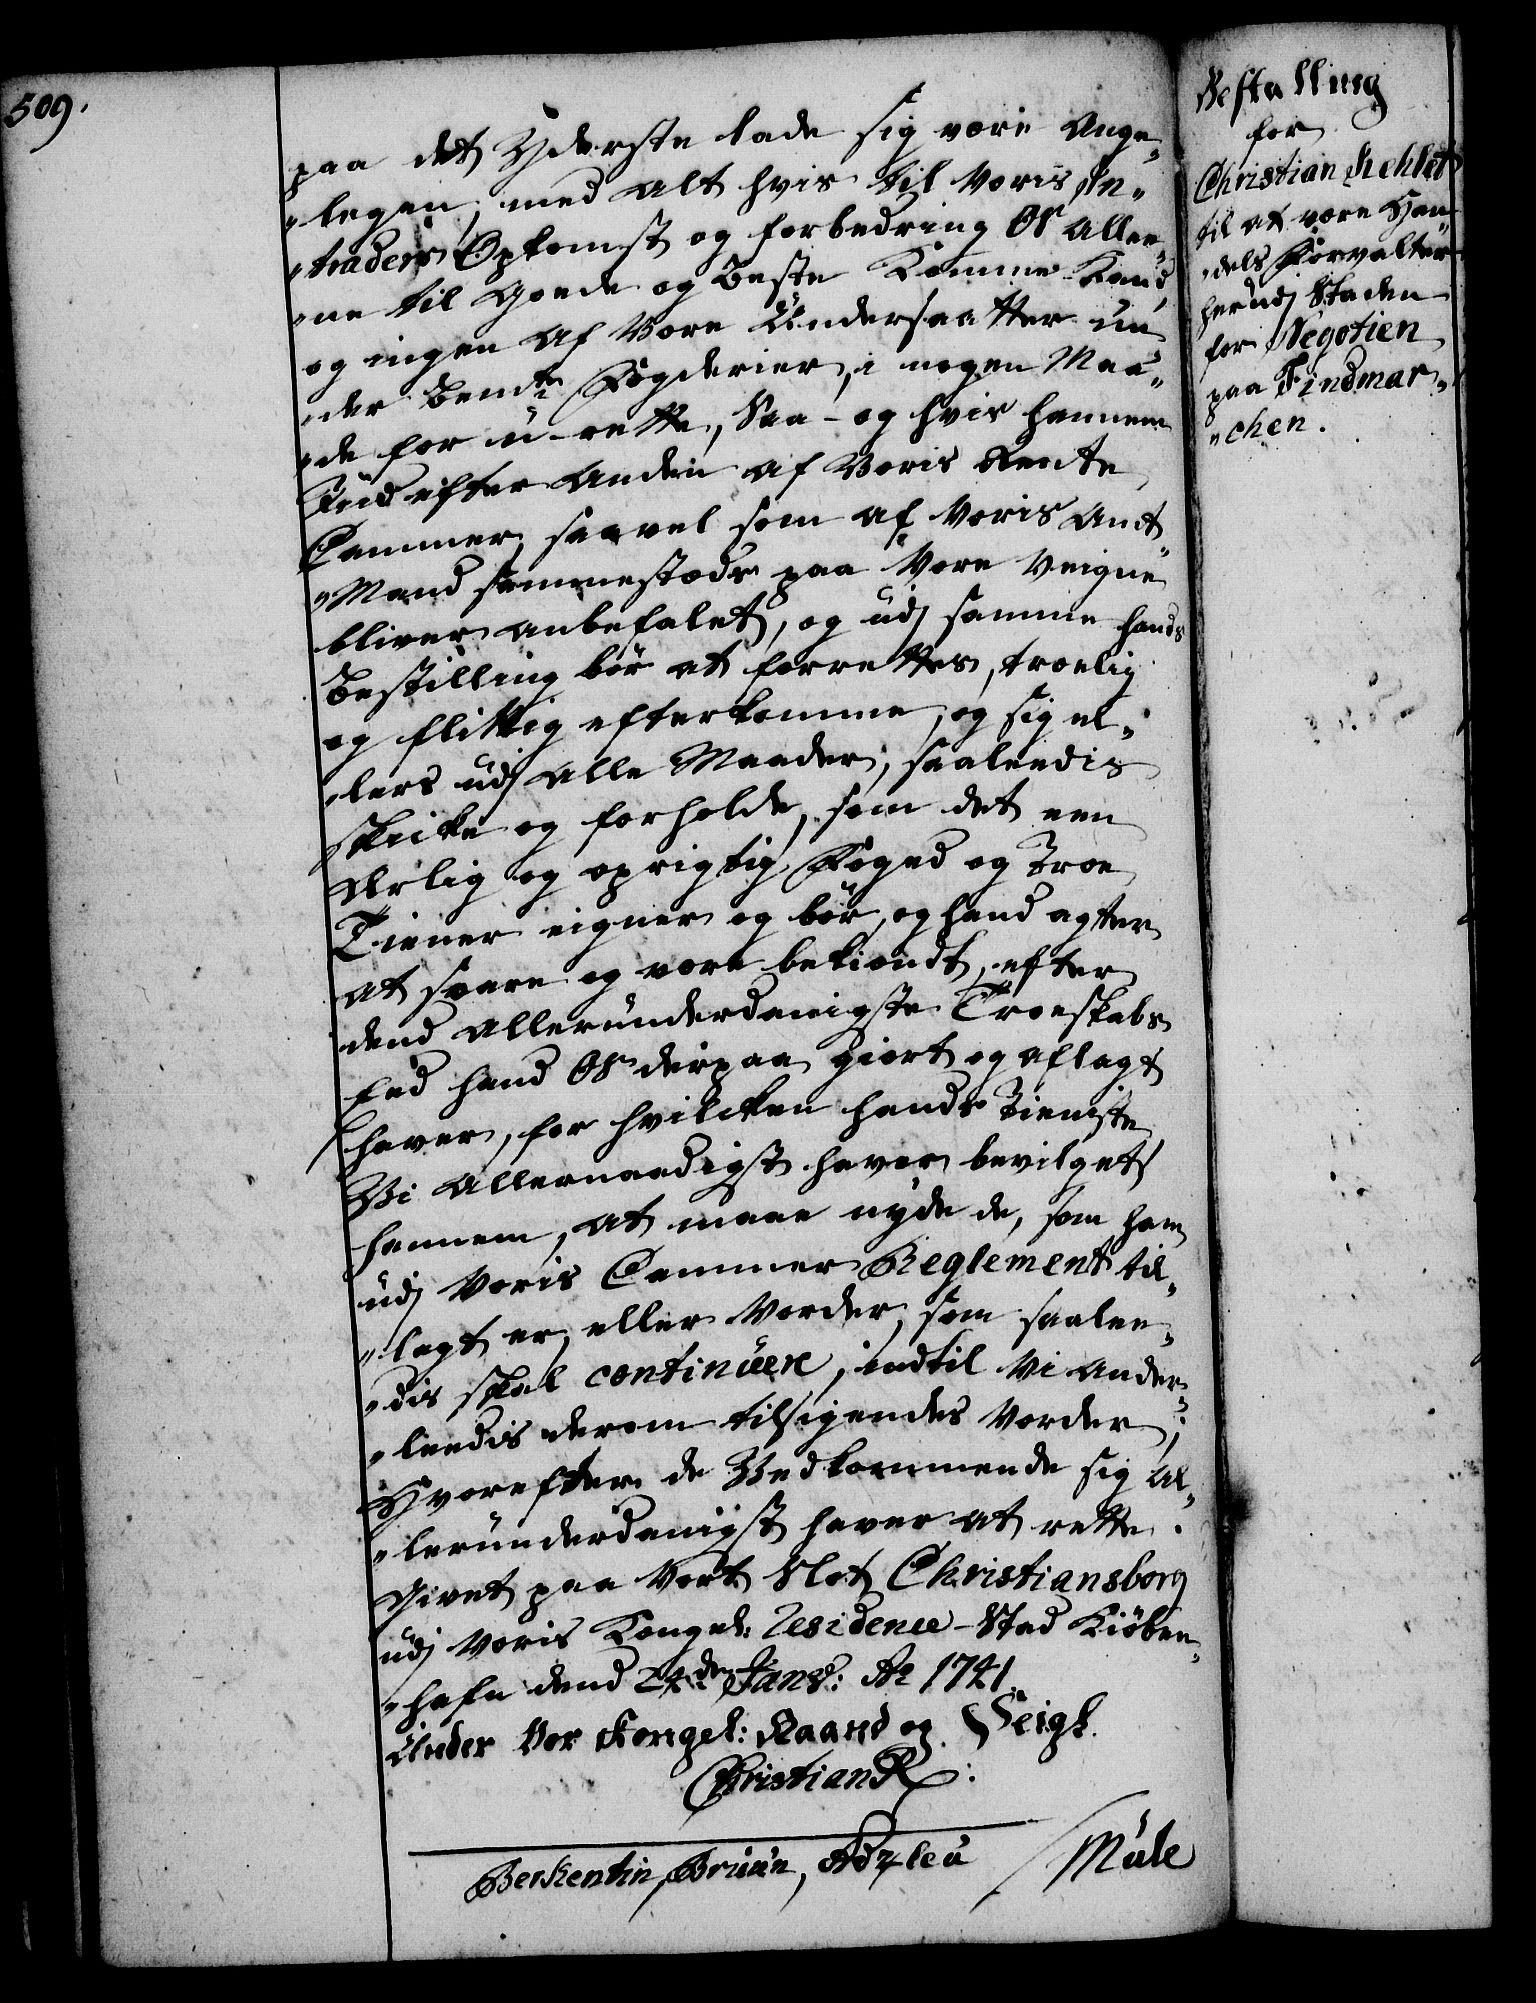 509.
paa det Yderste lade sig være Ange„
„legen, med Alt hvis til Voris In„
„trader Opkomst og forbedring Os Allee„
„ne til Goede og Beste Komme Kand
og ingen Af Vore Undersaatter un„
„der bemte Fogderier, i nogen Maa„
„de for u-rette, Saa-og hvis hannem
Tiid efter Anden Af Voris Rente
Cammer, saavel som Af Voris Amt„
„Mand sammestæds paa Vore Veigne
bliver Anbefalet, og udj samme hands
Bestilling bør At forrettes, troelig
og flittig efterkomme, og sig el„
„lers udj Alle Maader, saaleedis
skicke og forholde, som det een
Ærlig og oprigtig Foged og Troe
Tiener eigner og bør, og hand agter
At svare og være bekiendt, efter
dend Allerunderdanigste Troeskabs
Eed hand Os derpaa giort og aflagt
haver, for hvilcken hands Tieniste
Vi Allernaadigst haver bevilget
hannem, At maae nyde de, som ham
udj Voris Cammer Reglement til„
„lagt er, eller Vorder, som saalee„
„dis skal continuere, indtil Vi Ander„
„leedis derom tilsigendes Vorder;
Hvorefter de Vedkommende sig Al„
„lerunderdanigst haver At rette.
Givet paa Vort Slot Christiansborg
udj Voris Kongel: Residence-Stad Kiøben„
„hafn dend 24de Janv: Ao 1741.
Under Vor Kongel: Haand og Seigl.
Christian R:
Berkentin, Bruun, Adzleu / Mule
Bestalling
for
Christian Kehlet
til at være Han„
„dels Forvalter
herudj Staden
for Negotien
paa Findmar„
„chen.